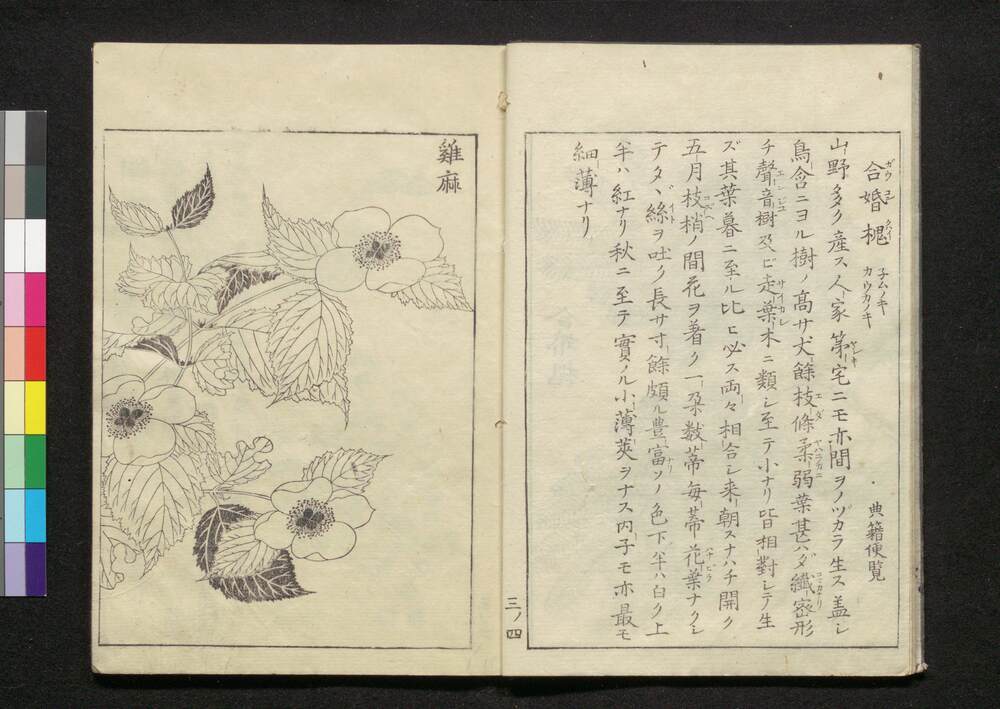 合婚槐 子ムノキ カウカノキ 典籍便覧
山野多ク産ス人家第宅ニモ亦間ヲノヅカラ生ス盖シ
鳥含ニヨル樹ノ髙サ丈餘枝條柔弱葉甚ハダ纎密形
チ聲音樹及ビ走葉木ニ類シ至テ小ナリ皆相對シテ生
ズ其葉暮ニ至ル比ヒ必ス両々相合シ来朝スナハチ開ク
五月枝梢ノ間花ヲ着ク一朶数蒂毎蒂花葉ナクシ
テタヾ絲ヲ吐ク長サ寸餘頗ル豊富ソノ色下半ハ白ク上
半ハ紅ナリ秋ニ至テ實ノル小薄莢ヲナス内子モ亦最モ
細薄ナリ
三ノ四
雞麻